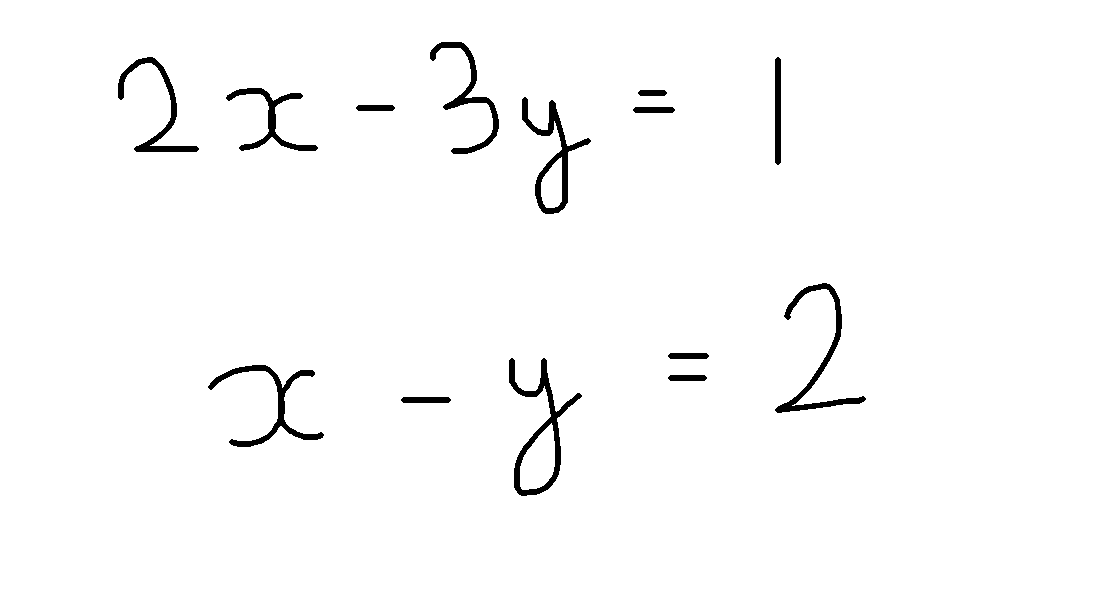 2x - 3y = 1
x - y = 2